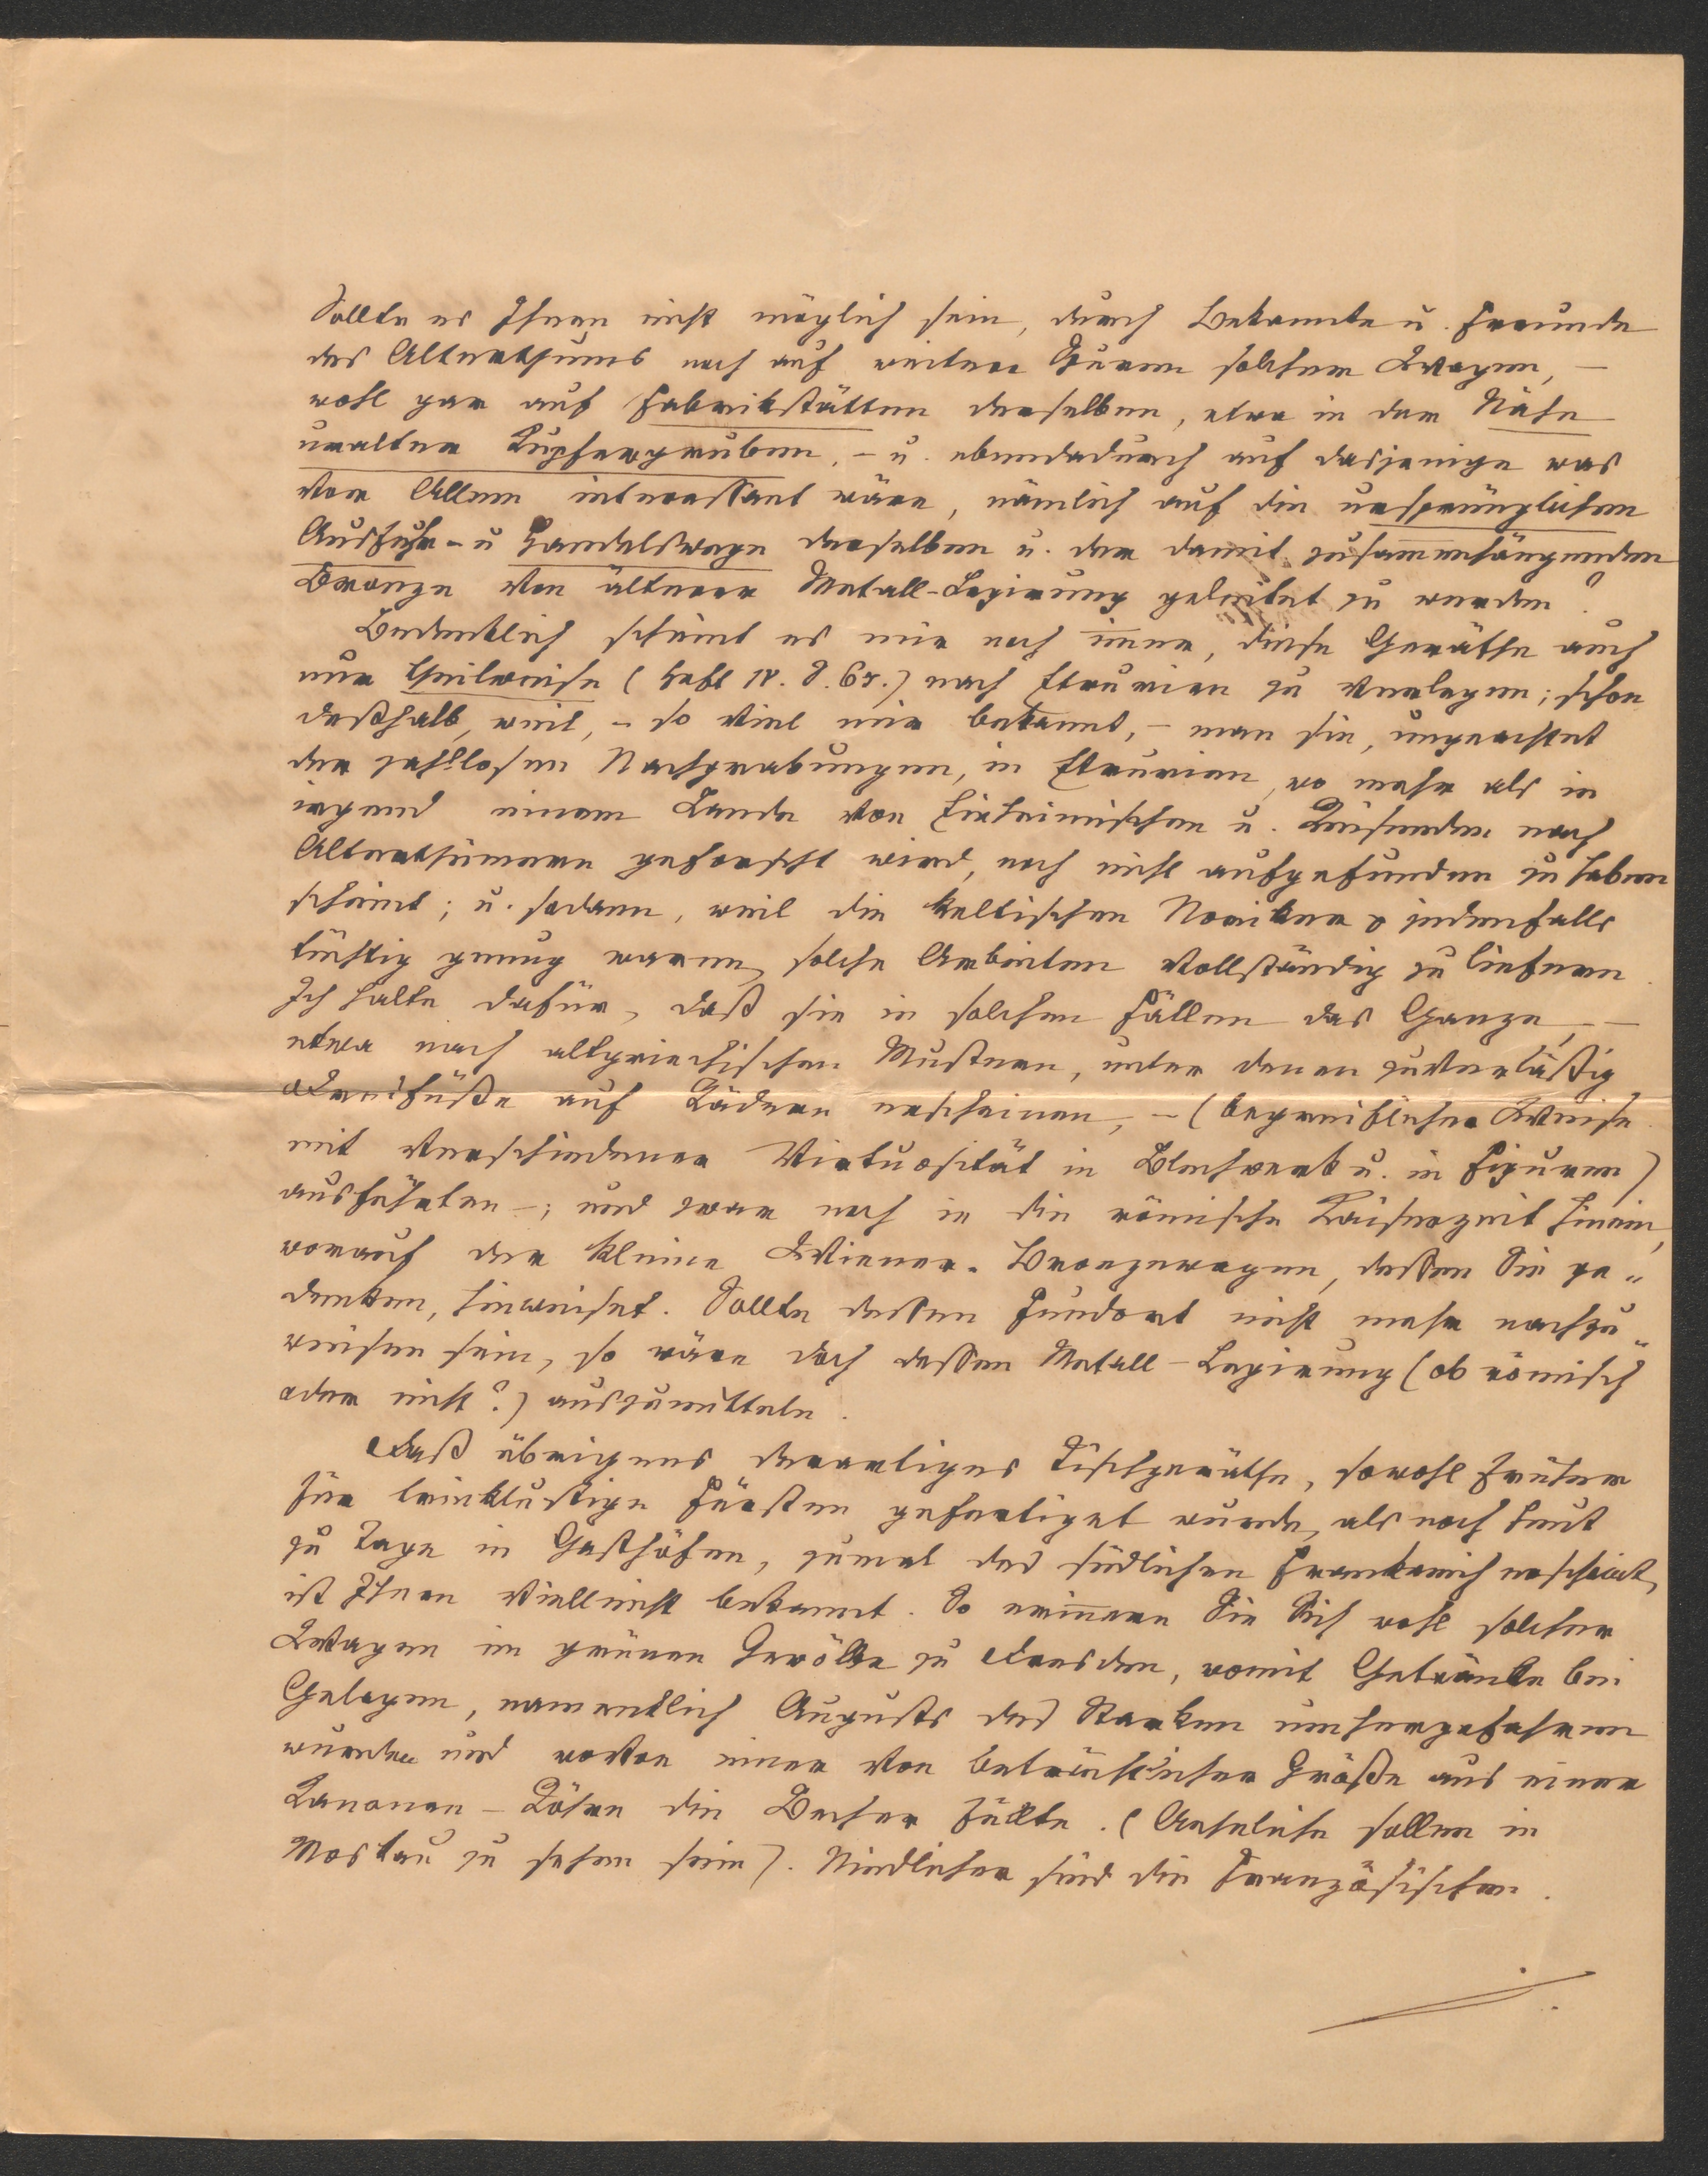 Sollte es Ihnen nicht möglich sein, durch Bekannte u. Freunde
des Alterthums noch auf weitere Spuren solcher Wagen, –
wohl gar auf Fabrikstätten derselben, etwa in der Nähe
uralter Kupfergruben, – u. ebendadurch auf dasjenige was
vor Allem interessant wäre, nämlich auf die ursprünglichen
Ausfuhr- u Handelswege derselben u. der damit zusam̅enhängenden
Bronze von älterer Metall-Legirung geleitet zu werden?
Bedenklich scheint es mir noch im̅er, diese Geräthe auch
nur theilweise (Heft 18. S. 65.) nach Etrurien zu verlegen; schon
deßhalb, weil, – so viel mir bekannt, – man sie, ungeachtet
der zahllosen Nachgrabungen, in Etrurien, wo mehr als in
irgend einem Lande von Einheimischen u. Reisenden nach
Alterthümern geforscht wird, noch nicht aufgefunden zu haben
scheint; u. sodann, weil die keltischen Noriker jedenfalls
tüchtig genug waren, solche Arbeiten vollständig zu liefern.
Ich halte dafür, daß sie in solchen Fällen das Ganze, –
etwa nach altgriechischen Mustern, unter denen zuverläßig
Dreifüße auf Rädern erscheinen, – (begreiflicher Weise
mit verschiedener Virtuosität in Blechwerk u. in Figuren)
ausführten –; und zwar noch in die römische Kaiserzeit hinein,
worauf der kleine Wiener-Bronzewagen, dessen Sie ge„
denken, hinweiset. Sollte dessen Fundort nicht mehr nachzu„
weisen sein, so wäre doch dessen Metall-Legirung (ob römisch
oder nicht?) auszumitteln.
Daß übrigens derartiges Tischgeräthe, sowohl früher
für trinklustige Fürsten gefertiget wurde, als noch heut
zu Tage in Gasthöfen, zumal des südlichen Frankreich erscheint,
ist Ihnen vielleicht bekannt. So erin̅ern Sie Sich wohl solcher
Wagen im grünen Gewölbe zu Dresden, womit Getränke bei
Gelagen, namentlich Augusts des Starken umhergefahren
wurden und wovon einer von beträchtlicher Größe aus einer
Kanonen-Röhre die Becher füllte. (Aehnliche sollen in
Moskau zu sehen sein). Niedlicher sind die Französischen.